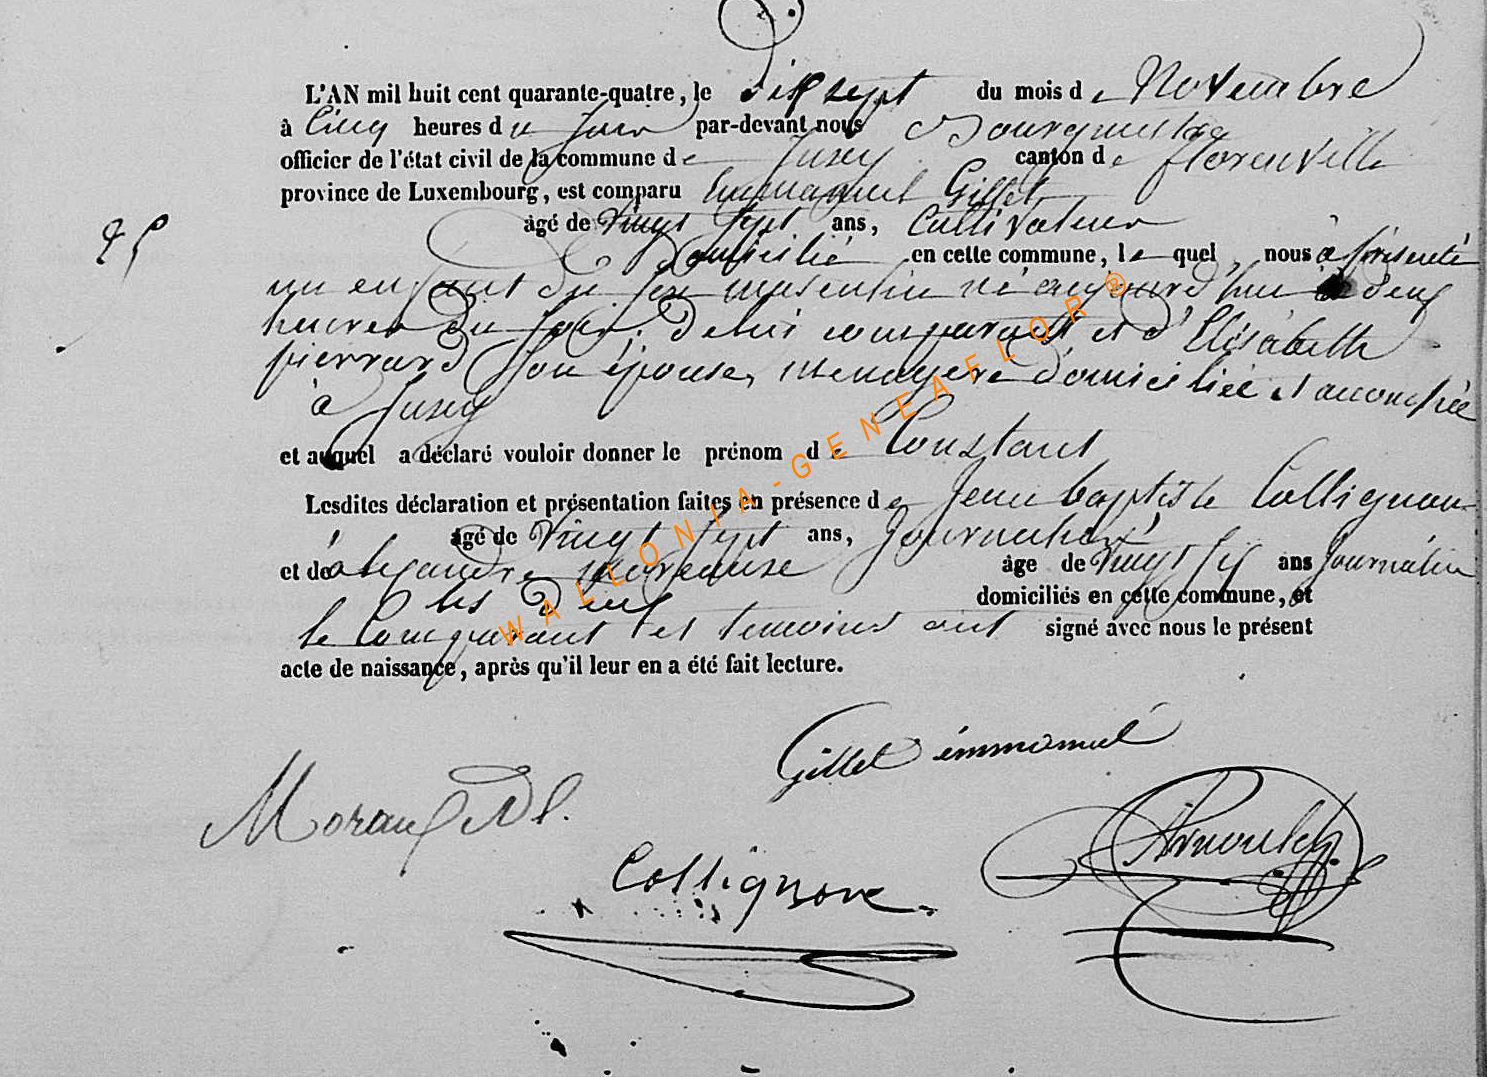 L'AN mil huit cent quarante-quatre, le dix sept du mois de Novembre
à Cinq heures du Soir par-devant nous Bourgmestre
officier de l'état civil de la commune de Jusey canton de florenville
province de Luxembourg, est comparu Emmanuel Gillet
âgé de vingt sept ans, Cultivateur
domicilié en cette commune, le quel nous à présenté
un enfant du sexe masculin né aujourd'hui à deux
heures du soir, de lui comparant et d'Elisabeth
pierrard son épouse, menagere domiciliée et accouchée
à Jusey
et auquel a déclaré vouloir donner le prénom de Constant
Lesdites déclaration et présentation faites en présence de Jean baptiste Collignon
âgé de vingt sept ans, Journalier
et de ans Journalier
âge de vingt
les deux domiciliés en cette commune, et
le Comparant et temoins ont signé avec nous le présent
acte de naissance, après qu'il leur en a été fait lecture.
Gillet émmanuel
Collignon
Arnould
WALLONIA-GENEAFLOR®